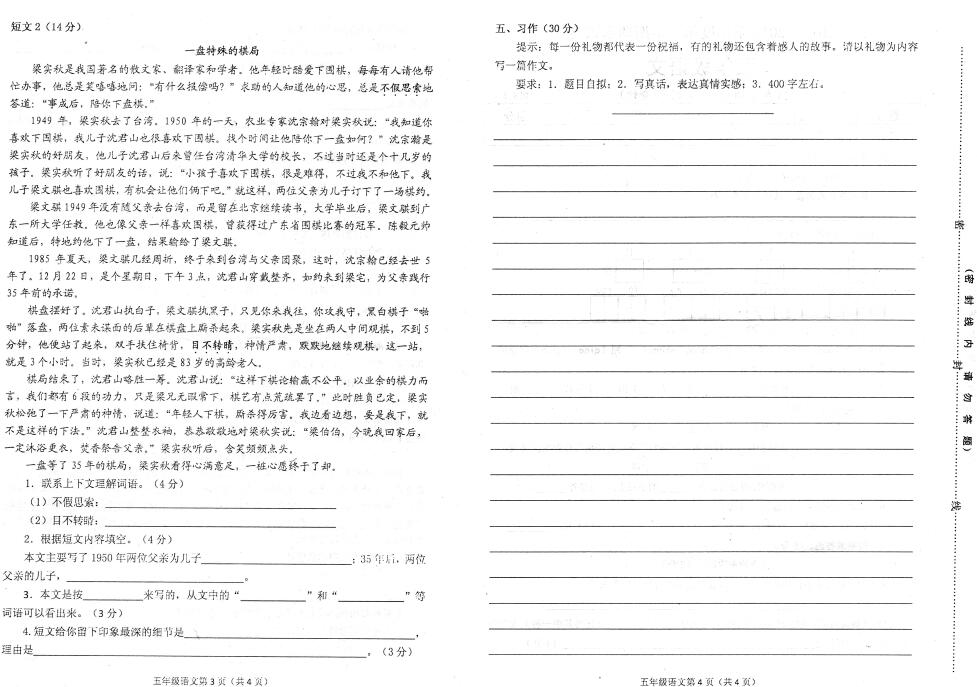 短文2（14分）
一盘特殊的棋局
梁实秋是我国著名的散文家、翻译家和学者。他年轻时酷爱下围棋，每每有人请他帮
忙办事，他总是笑嘻嘻地问：“有什么报偿吗？”求助的人知道他的心思，总是不假思索地
答道：“事成后，陪你下盘棋。”
1949年，梁实秋去了台湾。1950年的一天，农业专家沈宗瀚对梁实秋说：“我知道你
喜欢下围棋，我儿子沈君山也很喜欢下围棋。找个时间让他陪你下一盘如何？”沈宗瀚是
梁实秋的好朋友，他儿子沈君山后来曾任台湾清华大学的校长，不过当时还是个十几岁的
孩子。梁实秋听了好朋友的话，说：“小孩子喜欢下围棋，很是难得，不过我不和他下。我
儿子梁文骐也喜欢围棋，有机会让他们俩下吧。”就这样，两位父亲为儿子订下了一场棋约。
梁文骐1949年没有随父亲去台湾，而是留在北京继续读书。大学毕业后，梁文骐到广
东一所大学任教。他也像父亲一样喜欢围棋，曾获得过广东省围棋比赛的冠军。陈毅元帅
知道后，特地约他下了一盘，结果输给了梁文骐。
1985年夏天，梁文骐几经周折，终于来到台湾与父亲团聚，这时，沈宗瀚已经去世5
年了。12月22日，是个星期日，下午3点，沈君山穿戴整齐，如约来到梁宅，为父亲践行
35年前的承诺。
棋盘摆好了。沈君山执白子，梁文骐执黑子，只见你来我往，你攻我守，黑白棋子“啪
啪”落盘，两位素未谋面的后辈在棋盘上厮杀起来。梁实秋先是坐在两人中间观棋，不到5
分钟，他便站了起来，双手扶住椅背，目不转睛，神情严肃，默默地继续观棋。这一站，
就是3个小时。当时，梁实秋已经是83岁的高龄老人。
棋局结束了，沈君山略胜一筹。沈君山说：“这样下棋论输赢不公平。以业余的棋力而
言，我们都有6段的功力，只是梁兄无暇常下，棋艺有点荒疏罢了。”此时胜负已定，梁实
秋松弛了一下严肃的神情，说道：“年轻人下棋，厮杀得厉害。我边看边想，要是我下，就
不是这样的下法。”沈君山整整衣袖，恭恭敬敬地对梁秋实说：“梁伯伯，今晚我回家后，
一定沐浴更衣，焚香祭告父亲。”梁实秋听后，含笑频频点头。
一盘等了35年的棋局，梁实秋看得心满意足，一桩心愿终于了却。
1．联系上下文理解词语。（4分）
（1）不假思索：
（2）目不转睛：
2．根据短文内容填空。（4分）
本文主要写了1950年两位父亲为儿子；35年后，两位
父亲的儿子，。
3．本文是按来写的，从文中的“”和“”等
词语可以看出来。（3分）
4.短文给你留下印象最深的细节是，
理由是。（3分）
五年级语文第3页（共4页）
五、习作（30分）
提示：每一份礼物都代表一份祝福，有的礼物还包含着感人的故事。请以礼物为内容
写一篇作文。
要求：1．题目自拟；2．写真话，表达真情实感；3．400字左右。
五年级语文第4页（共4页）
密
封
线
（密封线内请勿答题）